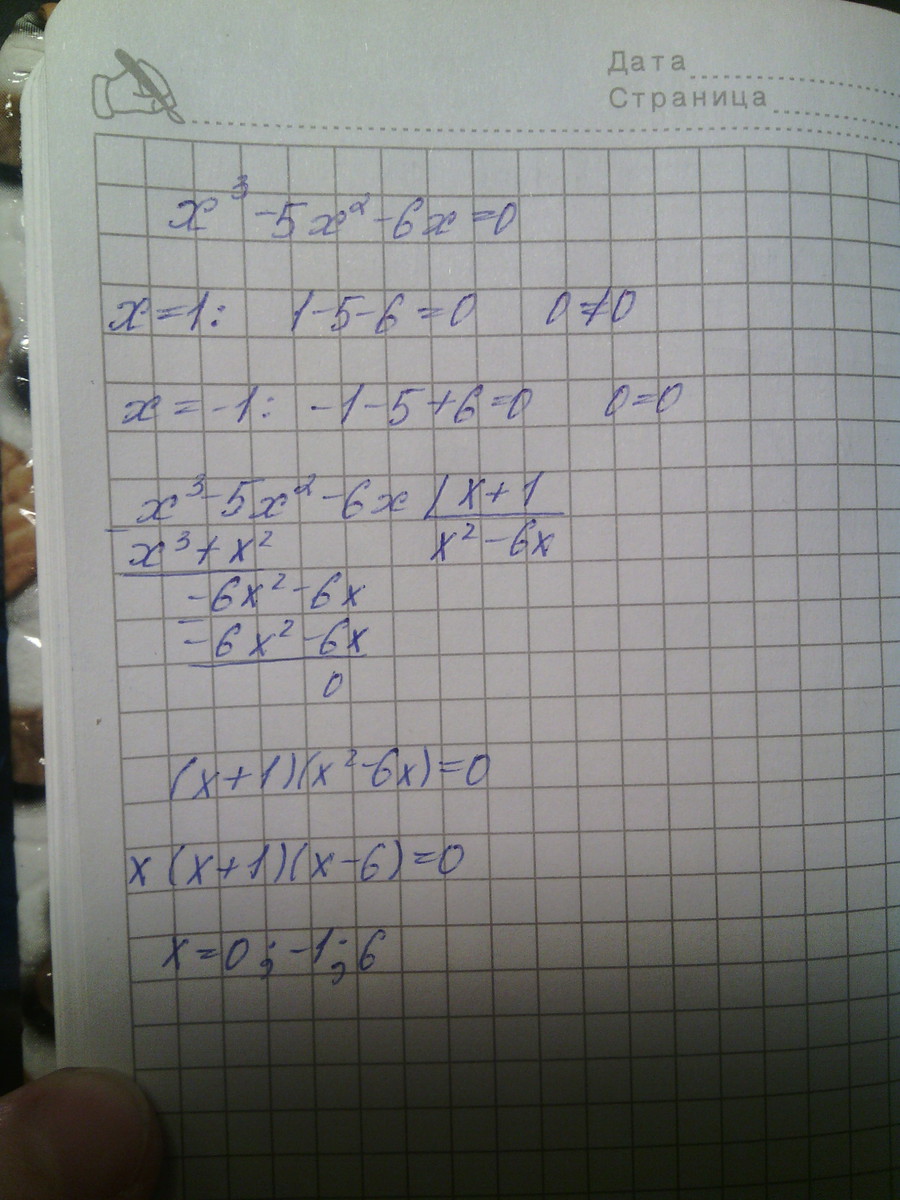 Дата
Страница
x³ - 5x² - 6x = 0
x = 1: 1 - 5 - 6 = 0 0 ≠ 0
x = -1: -1 - 5 + 6 = 0 0 = 0
x³ - 5x² - 6x | x + 1
x³ + x² x² - 6x
-6x² - 6x
-6x² - 6x
0
(x + 1)(x² - 6x) = 0
x (x + 1)(x - 6) = 0
x = 0; -1; 6